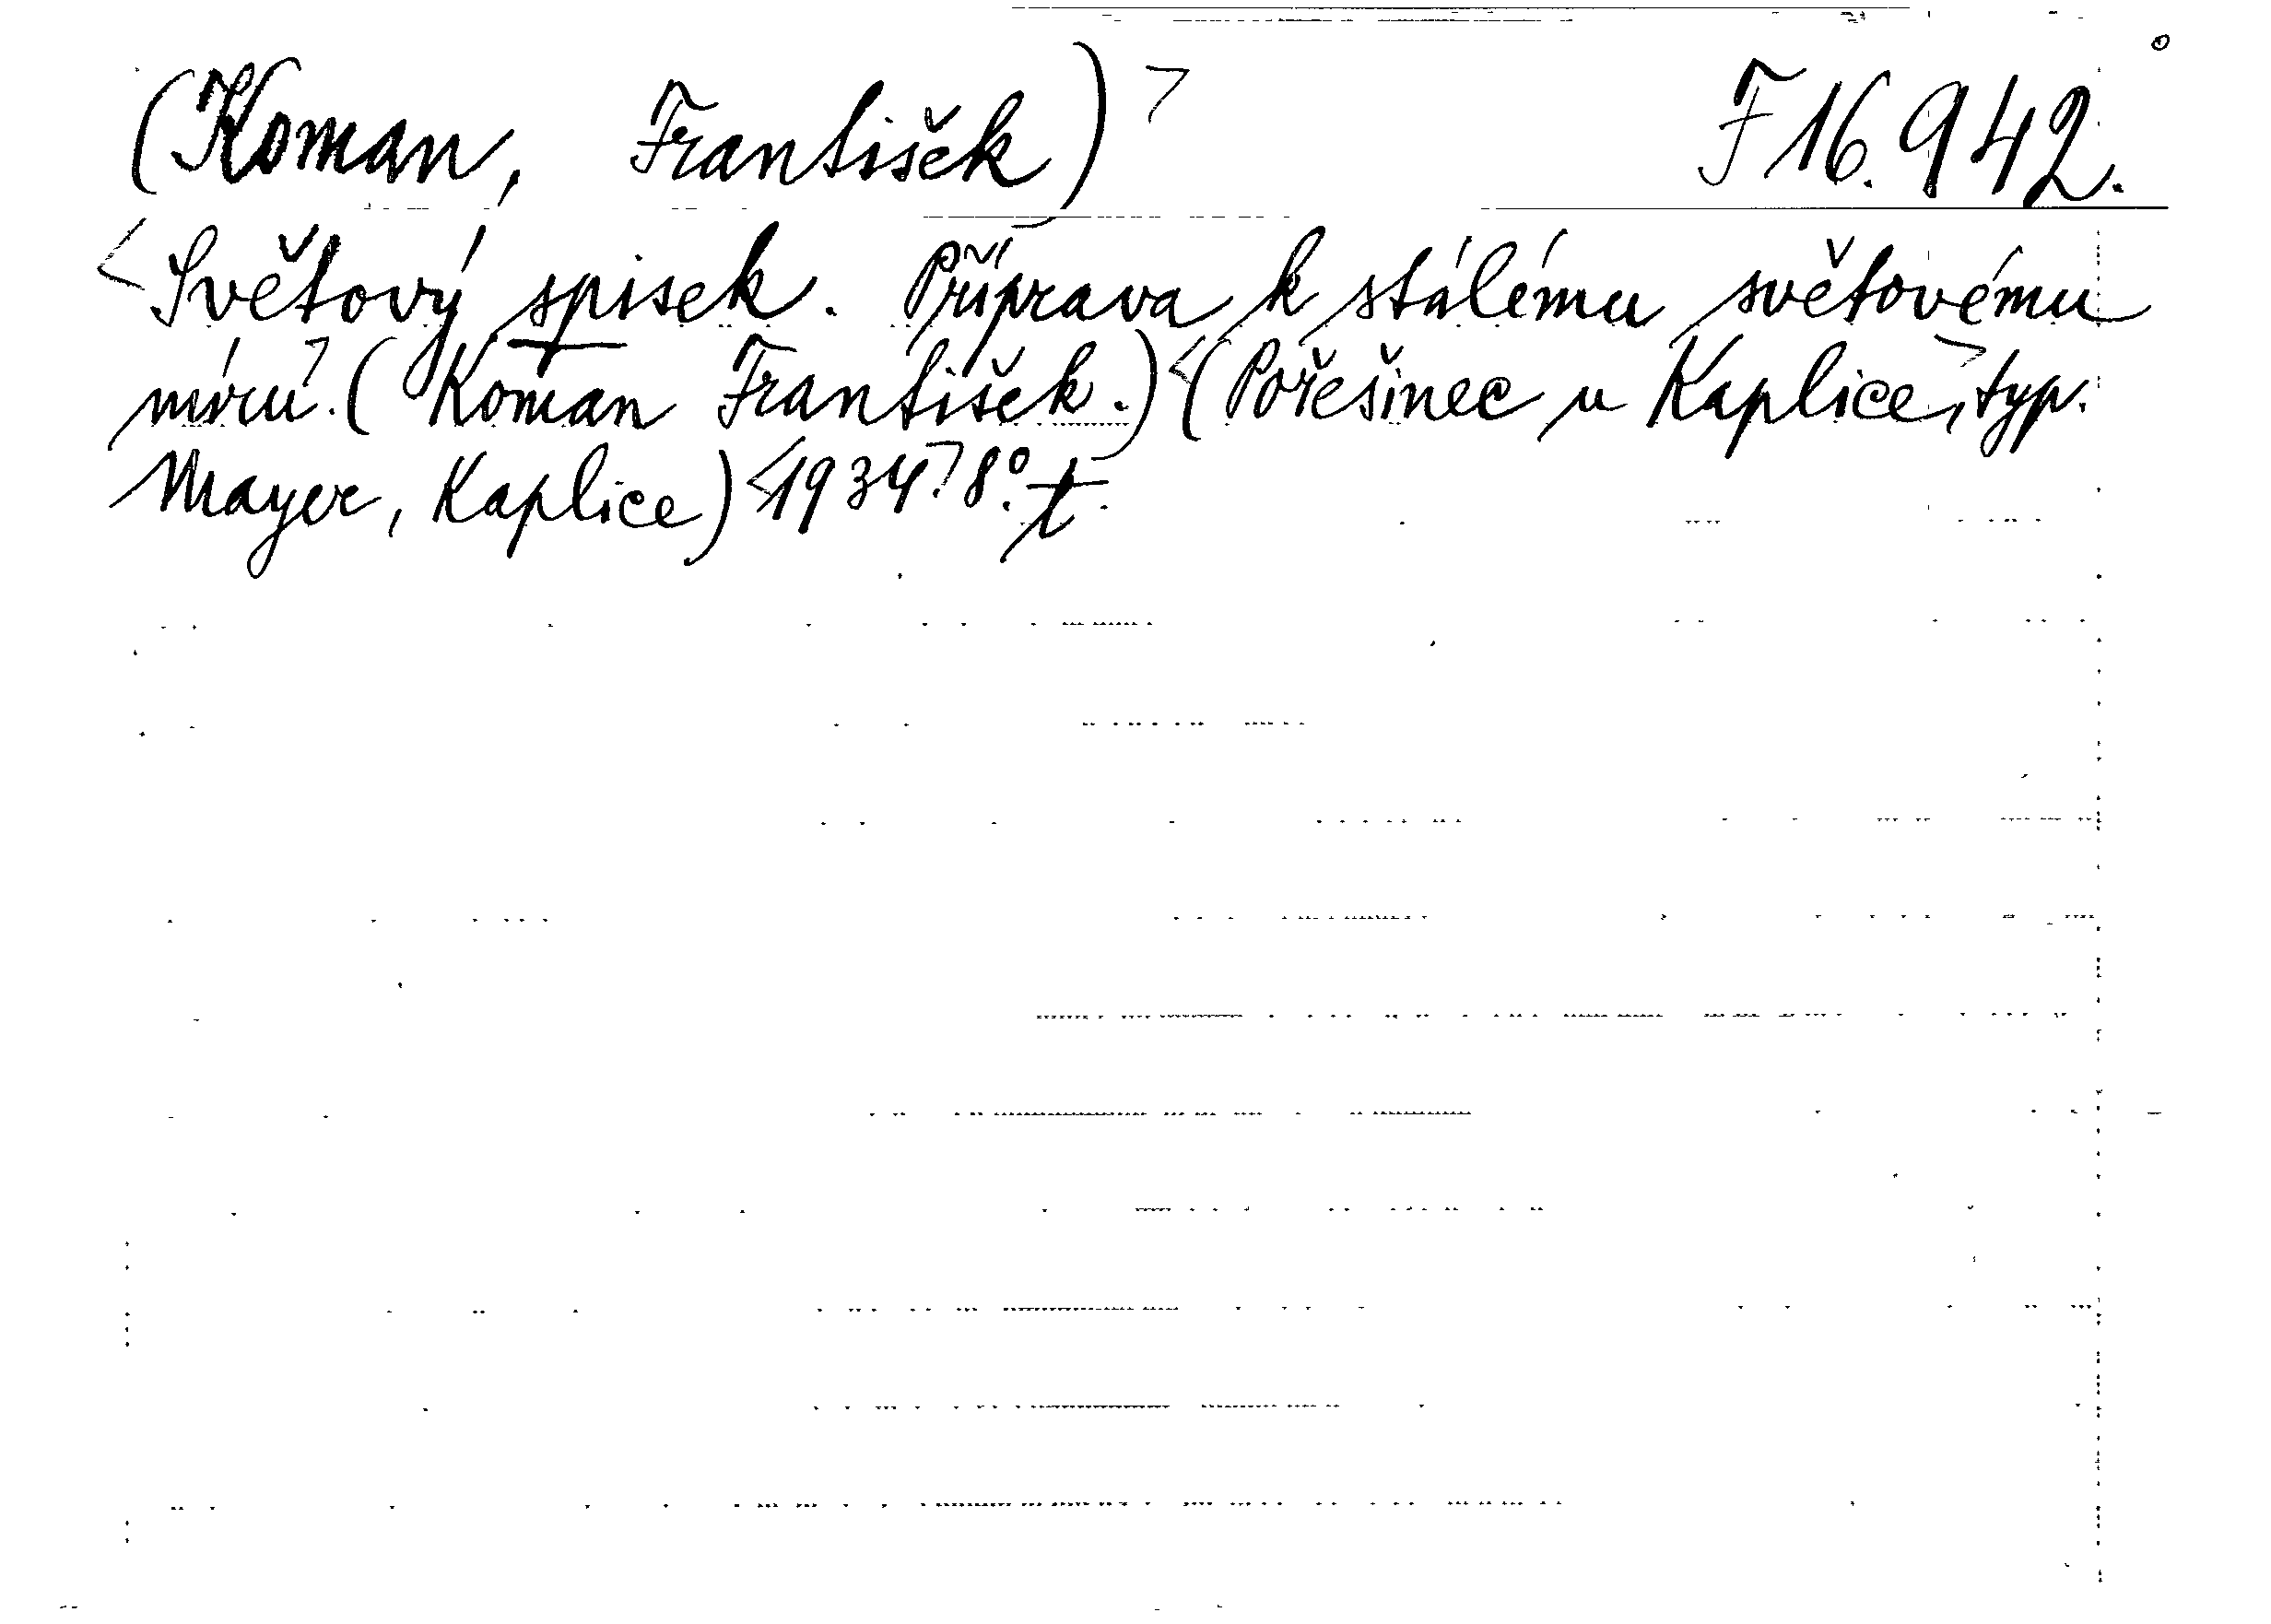 (Koman, František)> F 16.942.
<Světový spisek. Příprava k stálému světovému
míru>. (Koman František.) <(Pořešinec u Kaplice>, typ.
Mayer, Kaplice) <1934.> 8°. t.